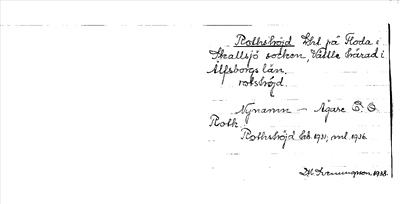 Rothshöjd Lht. på Floda i
Skallsjö socken, Vättle härad i
Älfsborgs län.
rotshöjd.
Nynamn – Ägare E. O
Roth.
Rothshöjd 1931; ml. 1936.
1938.